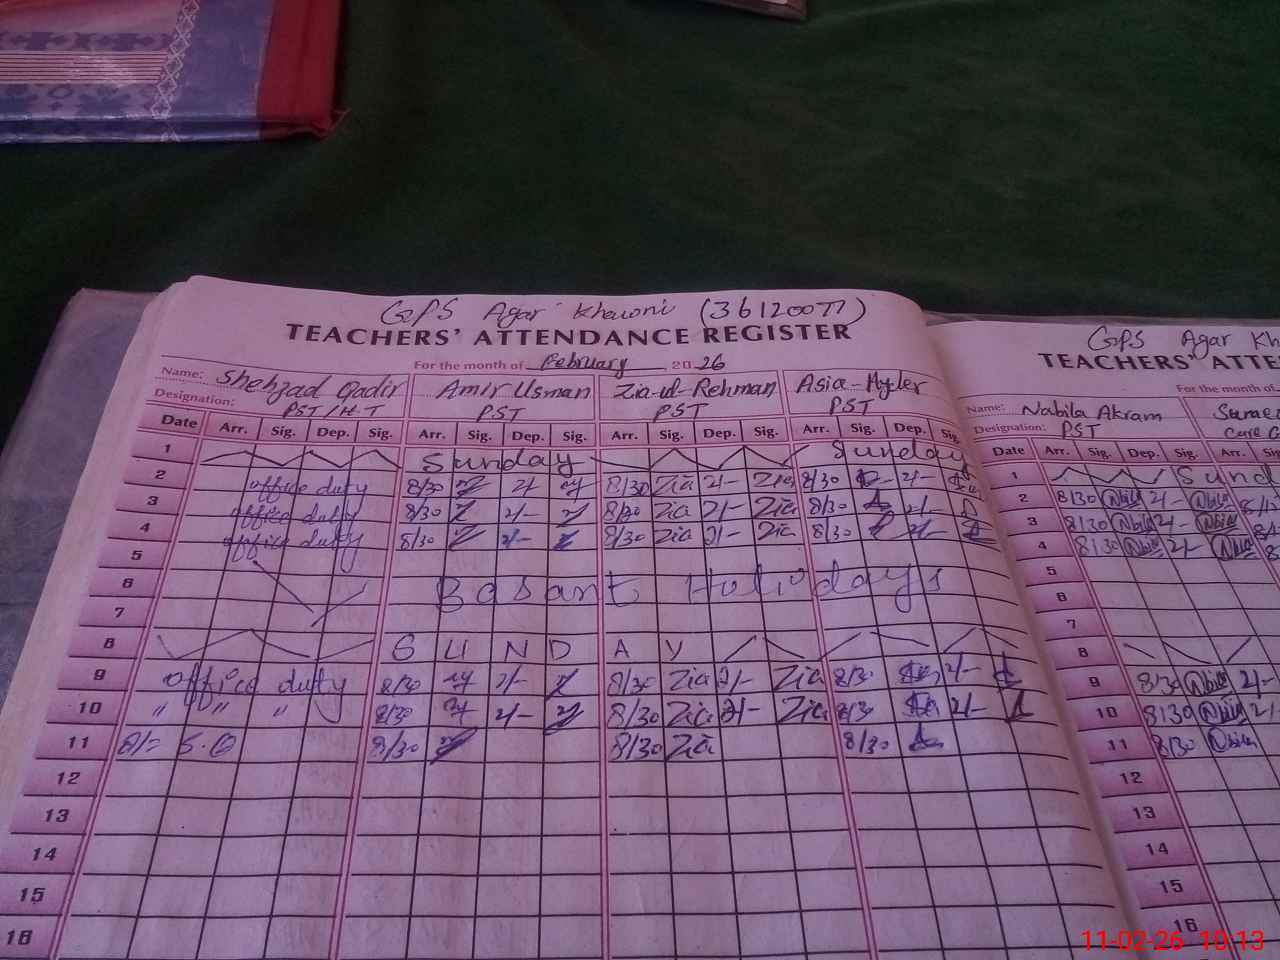 GPS Agar Khewoni (36120077)
TEACHERS' ATTENDANCE REGISTER
For the month of February 2026
Name: Shehzad Qadir Amir Usman Zia-ul-Rehman Asia-Hyder
Designation: PST/H-T PST PST PST
Date Arr. Sig. Dep. Sig. Arr. Sig. Dep. Sig. Arr. Sig. Dep. Sig. Arr. Sig. Dep. Sig.
1 Sunday Sunday
2 office duty 8/30 2/- 8/30 Zia 2/- Zia 8/30 2/-
3 office duty 8/30 2/- 8/30 Zia 2/- Zia 8/30 2/-
4 office duty 8/30 2/- 8/30 Zia 2/- Zia 8/30 2/-
5
6 Basant Holidays
7
8 SUNDAY
9 office duty 8/30 2/- 8/30 Zia 2/- Zia 8/30 2/-
10 " " " 8/30 2/- 8/30 Zia 2/- Zia 8/30 2/-
11 8/= S.Q 8/30 8/30 Zia 8/30
12
13
14
15
16
GPS Agar Kh
TEACHERS' ATTE
For the month of
Name: Nabila Akram
Designation: PST
Date Arr. Sig. Dep. Sig.
1 Sund
2 8/30 Nabila 2/- Nabila
3 8/30 Nabila 2/- Nabila
4 8/30 Nabila 2/- Nabila
5
6
7
8
9 8/30 Nabila 2/-
10 8/30 Nabila 2/-
11 8/30 Nabila
12
13
14
15
16
11-02-26 10:13